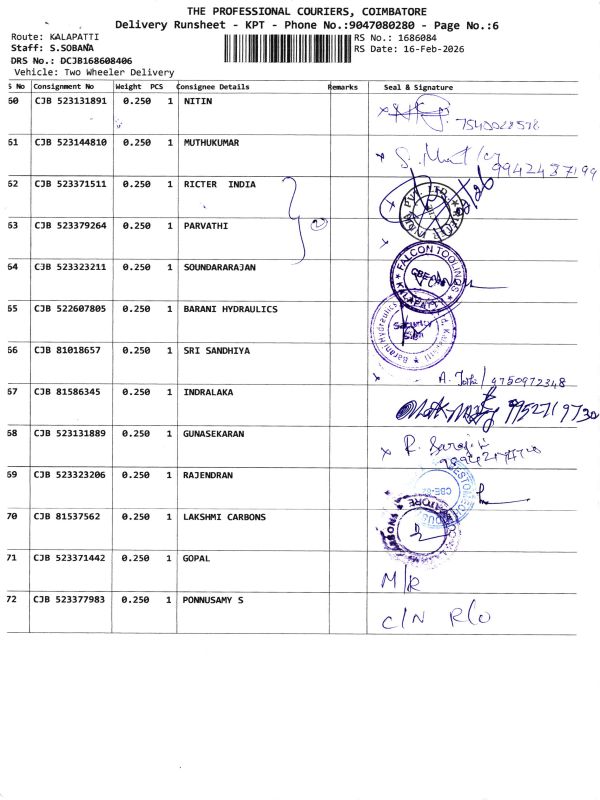 THE PROFESSIONAL COURIERS, COIMBATORE
Delivery Runsheet - KPT - Phone No.:9047080280 - Page No.:6
Route: KALAPATTI
RS No.: 1686084
Staff: S.SOBANA
RS Date: 16-Feb-2026
DRS No.: DCJB168608406
Vehicle: Two Wheeler Delivery
S No Consignment No Weight PCS Consignee Details Remarks Seal & Signature
60 CJB 523131891 0.250 1 NITIN
61 CJB 523144810 0.250 1 MUTHUKUMAR
9942487199
62 CJB 523371511 0.250 1 RICTER INDIA
63 CJB 523379264 0.250 1 PARVATHI
64 CJB 523323211 0.250 1 SOUNDARARAJAN
FALCON TOOLINGS
KALAPATTI
65 CJB 522607805 0.250 1 BARANI HYDRAULICS
Barani Hydraulics
Security
Sign
66 CJB 81018657 0.250 1 SRI SANDHIYA
9750972348
67 CJB 81586345 0.250 1 INDRALAKA
9952719730
68 CJB 523131889 0.250 1 GUNASEKARAN
69 CJB 523323206 0.250 1 RAJENDRAN
70 CJB 81537562 0.250 1 LAKSHMI CARBONS
71 CJB 523371442 0.250 1 GOPAL
M/R
72 CJB 523377983 0.250 1 PONNUSAMY S
C/N R/O